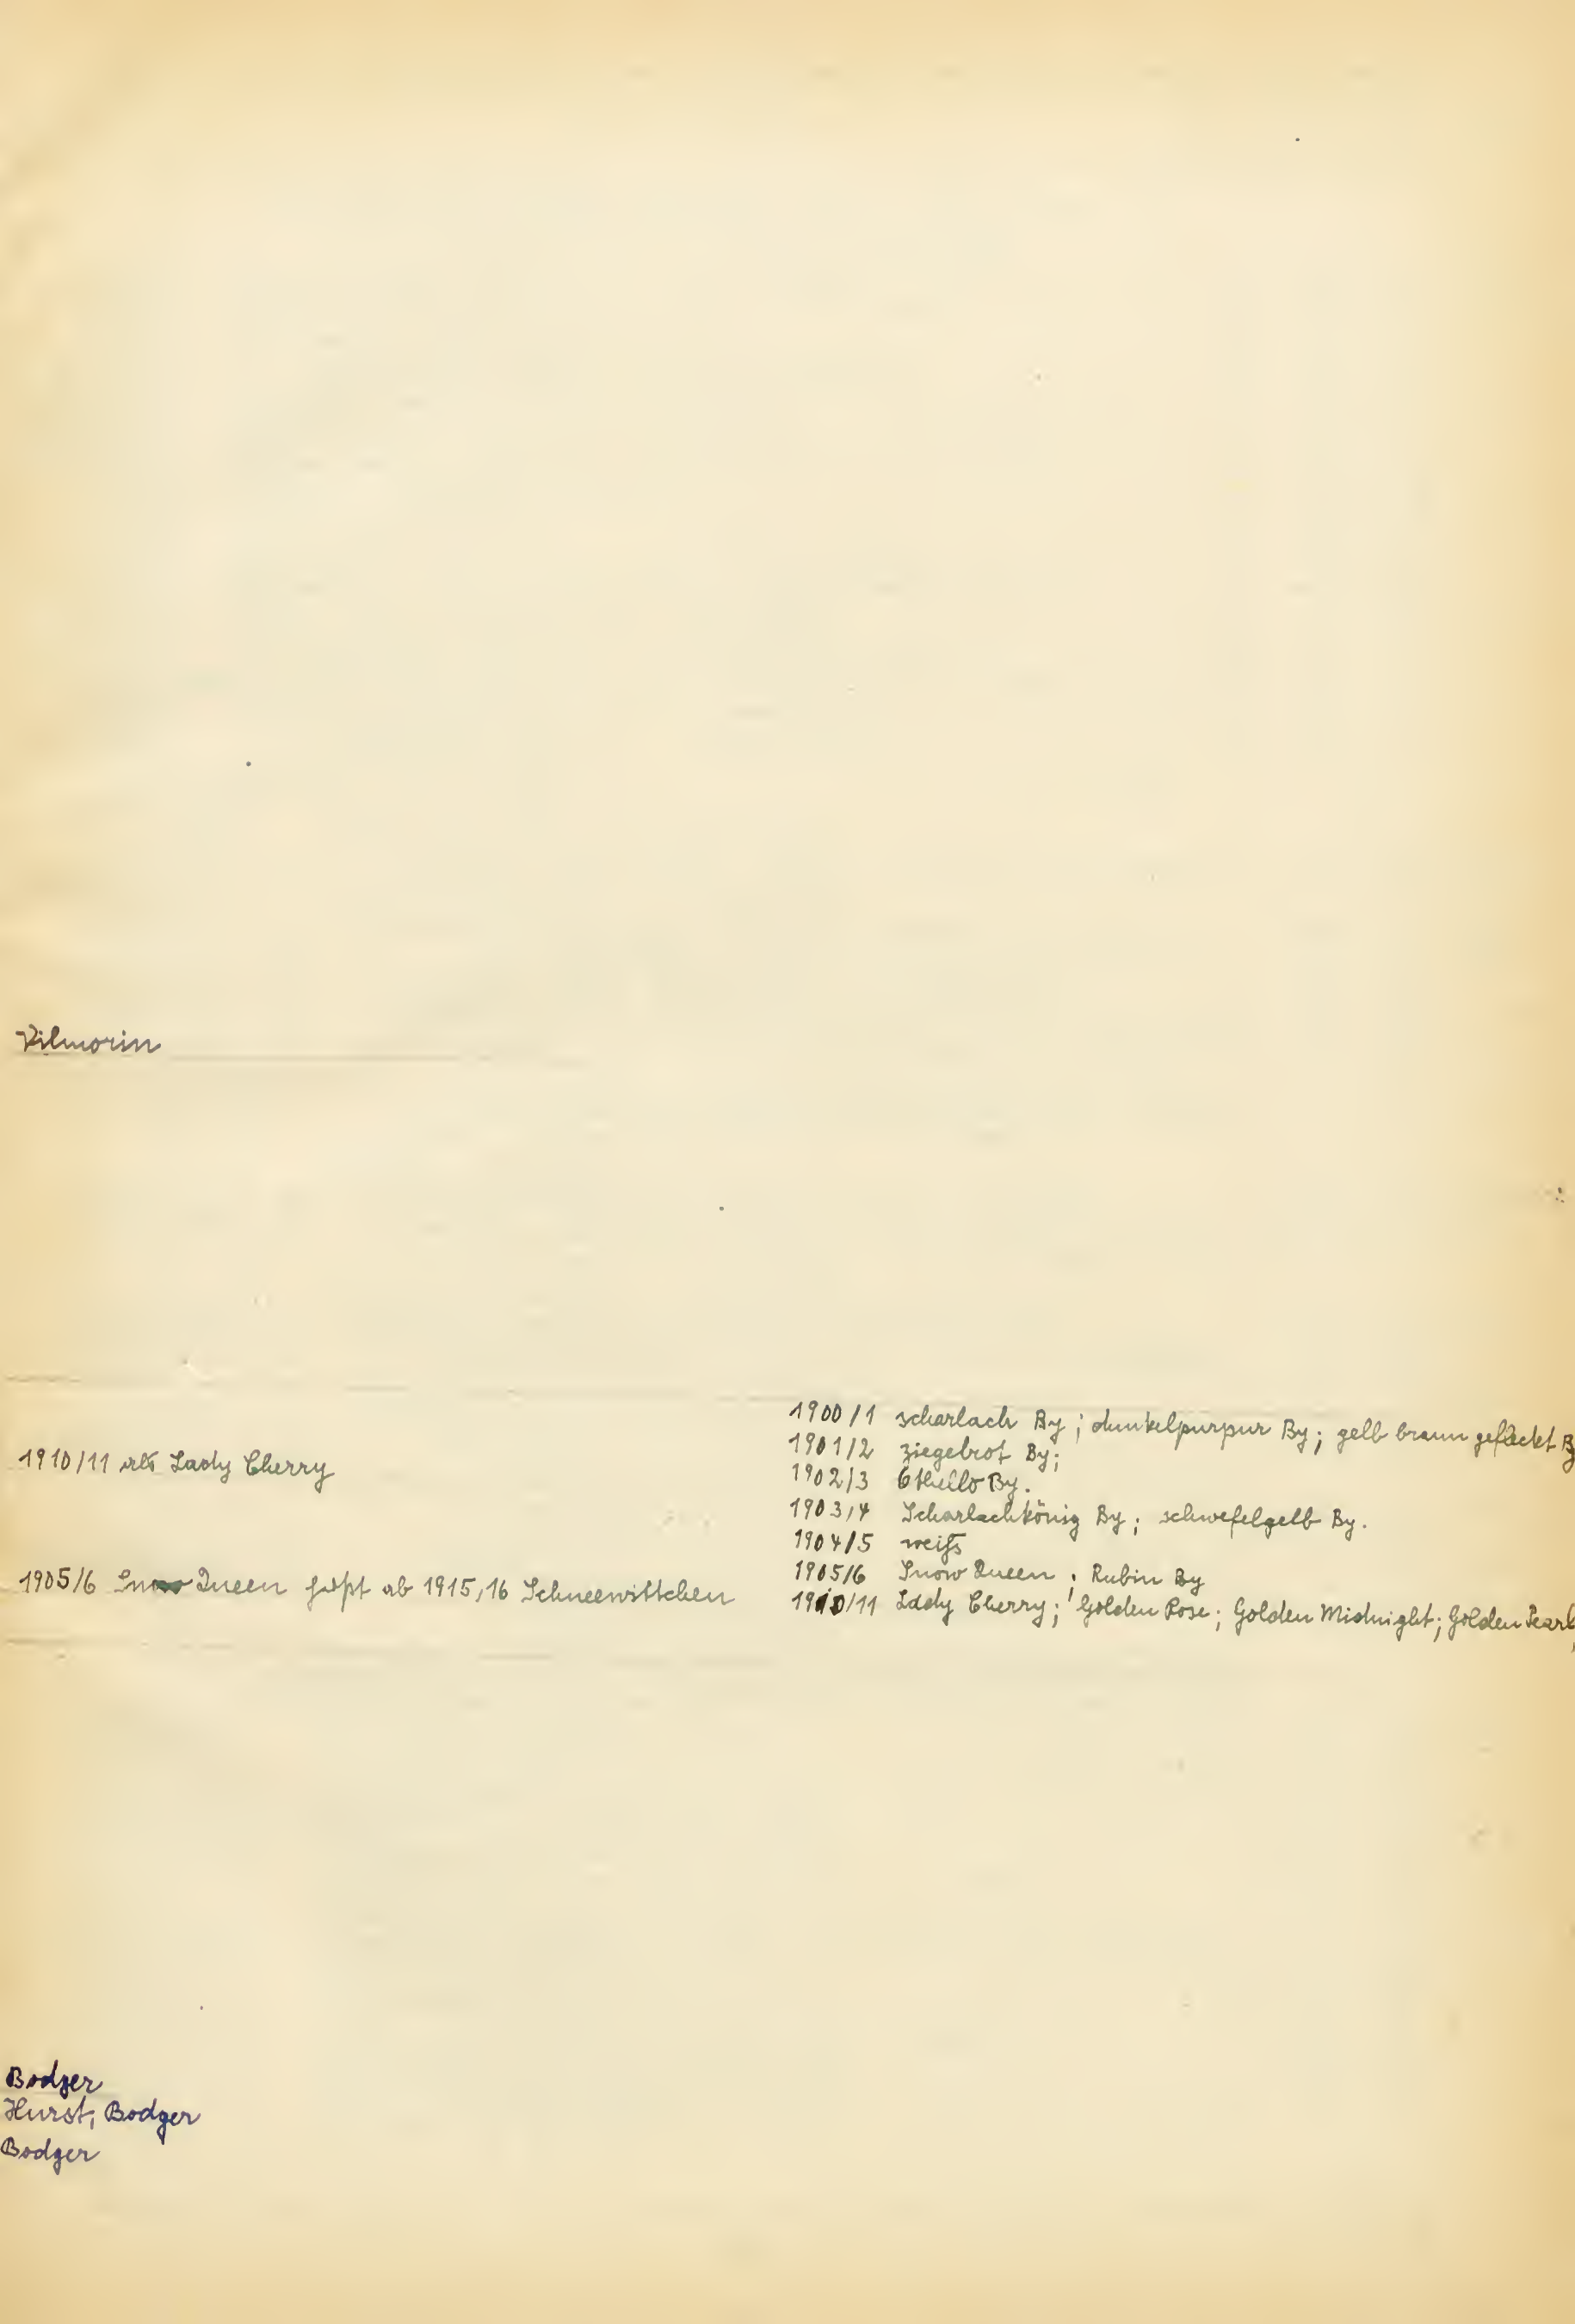 Vilmorin
1910/11 als Lady Cherry
1905/6 Snow Queen heißt ab 1915/16 Schneewittchen
1900/1 scharlach By; dunkelpurpur By; gelb braun gefleckt By
1901/2 ziegelrot By;
1902/3 Othello By.
1903/4 Scharlachkönig By; schwefelgelb By.
1904/5 weiß
1905/6 Snow Queen; Rubin By
1910/11 Lady Cherry; Golden Rose; Golden Midnight; Golden Pearl;
Bodger
Hurst, Bodger
Bodger